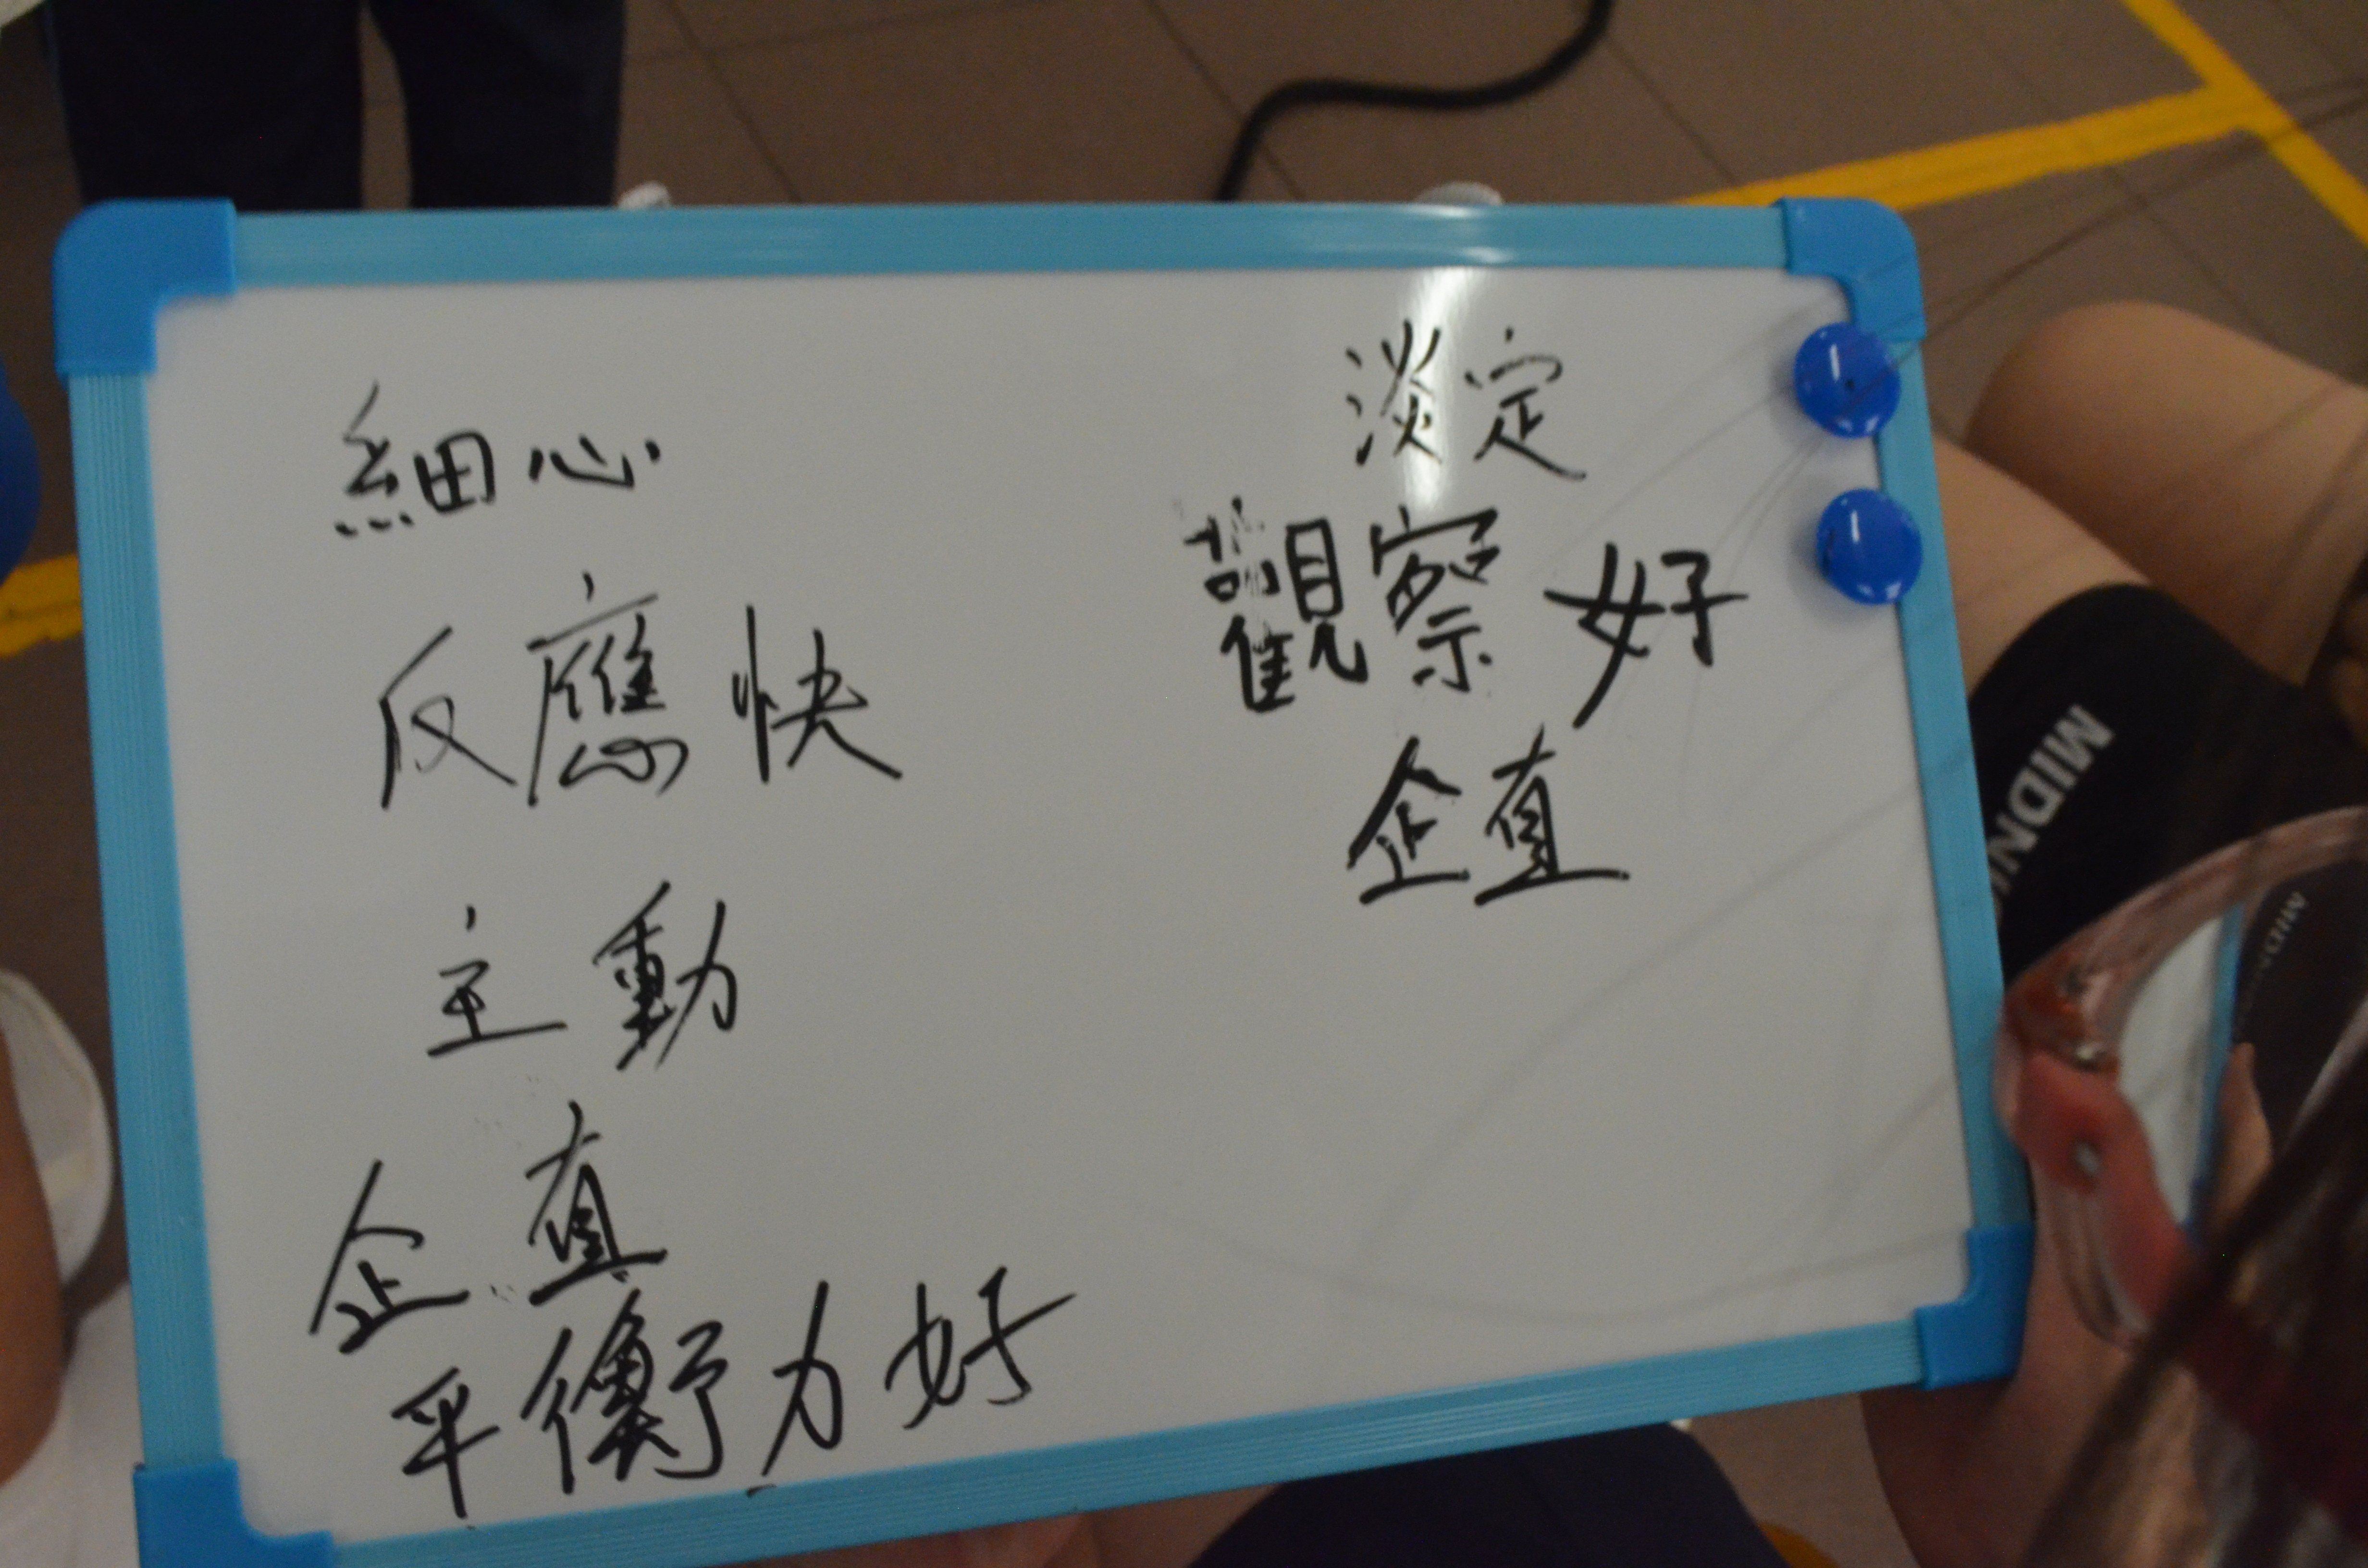 細心
反應快
主動
企直
平衡力好
淡定
觀察好
企直
MIDN